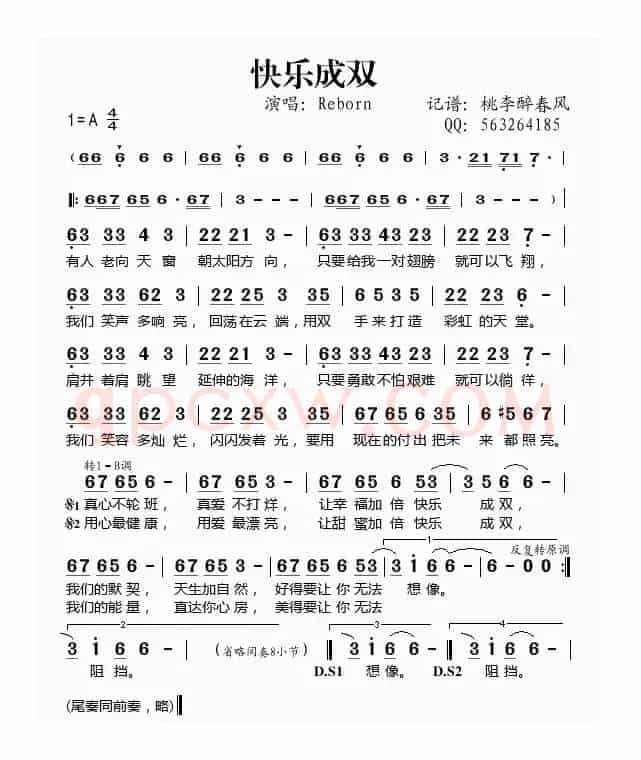 快乐成双
演唱：Reborn 记谱：桃李醉春风
1=A 4/4 QQ：563264185
( 66 6 6 6 | 66 6 6 6 | 66 6 6 6 | 3· 21 71 7· |
‖: 667 65 6·67 | 3 - - - | 667 65 6·67 | 3 - - - ) |
63 33 4 3 | 22 21 3 - | 63 33 43 23 | 22 23 7 - |
有人 老向 天 窗 朝太阳方 向， 只要给我一对翅膀 就可以飞 翔，
63 33 62 3 | 22 25 3 35 | 6 5 35 | 22 23 6 - |
我们 笑声 多响 亮， 回荡在云 端，用双 手来打造 彩虹的天 堂。
63 33 4 3 | 22 21 3 - | 63 33 43 23 | 22 23 7 - |
肩并 着肩 眺 望 延伸的海 洋， 只要勇敢不怕艰难 就可以徜 徉，
63 33 62 3 | 22 25 3 35 | 67 65 65 65 | 6 #5 6 7 |
我们 笑容 多灿 烂， 闪闪发着 光，要用 现在的付出把未 来 都 照亮。
转1-B调
67 65 6 - | 67 65 3 - | 67 65 6 53 | 3 5 6 6 |
𝄋1 真心不轮 班， 真爱 不打 烊， 让幸 福加 倍 快乐 成 双，
𝄋2 用心最健 康， 用爱 最漂 亮， 让甜 蜜加 倍 快乐 成 双，
1 反复转原调
67 65 6 - | 67 65 3 - | 67 65 6 53 | 3 i 6 6 | 6 - 0 0 :‖
我们的默 契， 天生加自 然， 好得要让 你 无法 想 像。
我们的能 量， 直达你心 房， 美得要让 你 无法
2 3 4
3 i 6 6 | 6 - - - | (省略间奏8小节) ‖ 3 i 6 6 ‖ 3 i 6 6 |
阻 挡。 D.S1 想 像。 D.S2 阻 挡。
(尾奏同前奏，略)‖
qpcxw.com